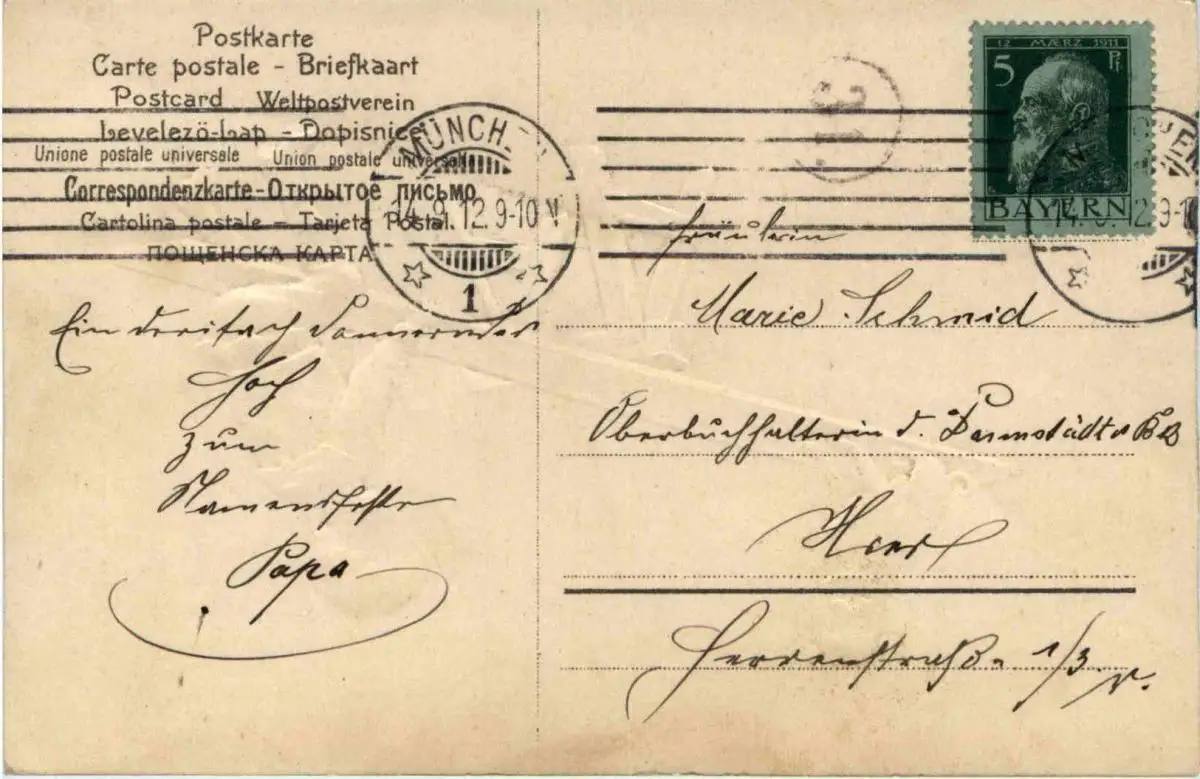 Postkarte
Carte postale - Briefkaart
Postcard Weltpostverein
Levelezö-Lap - Dopisnice
Unione postale universale Union postale universelle
Correspondenzkarte - Открытое письмо
Cartolina postale - Tarjeta Postal.
ПОЩЕНСКА КАРТА
MÜNCHEN
12.9-10 V
1
12 MÆRZ 1911
5 Pf
BAYERN
Ein dreifach donnerndes
Hoch
zum
Namensfeste
Papa
Fräulein
Marie Schmid
Oberbuchhalterin d. Darmstädter Bk
Hier
Herrenstraße 1/3 r.